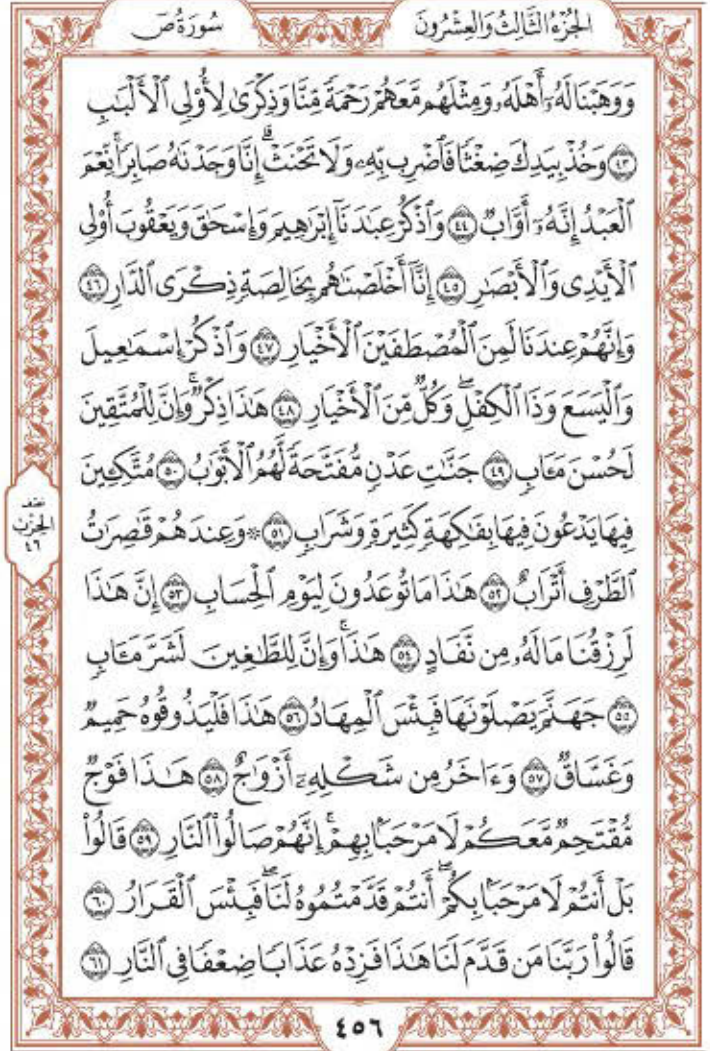 الجُزْءُ الثَّالِثُ وَالعِشْرُونَ
سُورَةُ صٓ
وَوَهَبْنَا لَهُۥٓ أَهْلَهُۥ وَمِثْلَهُم مَّعَهُمْ رَحْمَةً مِّنَّا وَذِكْرَىٰ لِأُوْلِى ٱلْأَلْبَٰبِ
٤٣ وَخُذْ بِيَدِكَ ضِغْثًا فَٱضْرِب بِّهِۦ وَلَا تَحْنَثْۗ إِنَّا وَجَدْنَٰهُ صَابِرًاۚ نِّعْمَ
ٱلْعَبْدُ إِنَّهُۥٓ أَوَّابٌ ٤٤ وَٱذْكُرْ عِبَٰدَنَآ إِبْرَٰهِيمَ وَإِسْحَٰقَ وَيَعْقُوبَ أُوْلِى
ٱلْأَيْدِى وَٱلْأَبْصَٰرِ ٤٥ إِنَّآ أَخْلَصْنَٰهُم بِخَالِصَةٍ ذِكْرَى ٱلدَّارِ ٤٦
وَإِنَّهُمْ عِندَنَا لَمِنَ ٱلْمُصْطَفَيْنَ ٱلْأَخْيَارِ ٤٧ وَٱذْكُرْ إِسْمَٰعِيلَ
وَٱلْيَسَعَ وَذَا ٱلْكِفْلِۖ وَكُلٌّ مِّنَ ٱلْأَخْيَارِ ٤٨ هَٰذَا ذِكْرٌۚ وَإِنَّ لِلْمُتَّقِينَ
لَحُسْنَ مَـَٔابٍ ٤٩ جَنَّٰتِ عَدْنٍ مُّفَتَّحَةً لَّهُمُ ٱلْأَبْوَٰبُ ٥٠ مُتَّكِـِٔينَ
فِيهَا يَدْعُونَ فِيهَا بِفَٰكِهَةٍ كَثِيرَةٍ وَشَرَابٍ ٥١ ۞ وَعِندَهُمْ قَٰصِرَٰتُ
ٱلطَّرْفِ أَتْرَابٌ ٥٢ هَٰذَا مَا تُوعَدُونَ لِيَوْمِ ٱلْحِسَابِ ٥٣ إِنَّ هَٰذَا
لَرِزْقُنَا مَا لَهُۥ مِن نَّفَادٍ ٥٤ هَٰذَاۚ وَإِنَّ لِلطَّٰغِينَ لَشَرَّ مَـَٔابٍ
٥٥ جَهَنَّمَ يَصْلَوْنَهَا فَبِئْسَ ٱلْمِهَادُ ٥٦ هَٰذَا فَلْيَذُوقُوهُ حَمِيمٌ
وَغَسَّاقٌ ٥٧ وَءَاخَرُ مِن شَكْلِهِۦٓ أَزْوَٰجٌ ٥٨ هَٰذَا فَوْجٌ
مُّقْتَحِمٌ مَّعَكُمْ لَا مَرْحَبًۢا بِهِمْۚ إِنَّهُمْ صَالُواْ ٱلنَّارِ ٥٩ قَالُواْ
بَلْ أَنتُمْ لَا مَرْحَبًۢا بِكُمْۖ أَنتُمْ قَدَّمْتُمُوهُ لَنَاۖ فَبِئْسَ ٱلْقَرَارُ ٦٠
قَالُواْ رَبَّنَا مَن قَدَّمَ لَنَا هَٰذَا فَزِدْهُ عَذَابًا ضِعْفًا فِى ٱلنَّارِ ٦١
نصف
الحِزْبِ
٤٦
٤٥٦